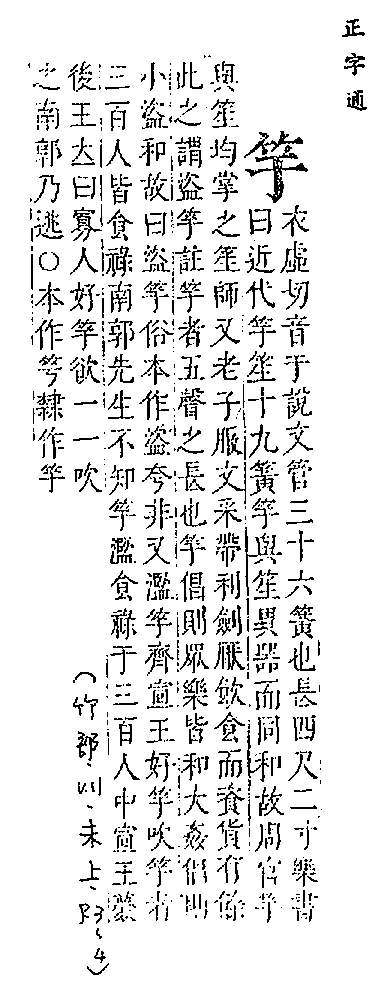 正字通
竽
衣虛切音于說文管三十六簧也長四尺二寸樂書
曰近代竽笙十九簧竽與笙異器而同和故周官竽
與笙均掌之笙師又老子服文采帶利劍厭飲食而資貨有餘
此之謂盜竽註竽者五聲之長也竽倡則眾樂皆和大姦倡則
小盜和故曰盜竽俗本作盜夸非又濫竽齊宣王好竽吹竽者
三百人皆食祿南郭先生不知竽濫食祿于三百人中宣王薨
後王立曰寡人好竽欲一一吹
之南郭乃逃○本作𥬔隸作竽
(竹部、川、未上、P3、4)